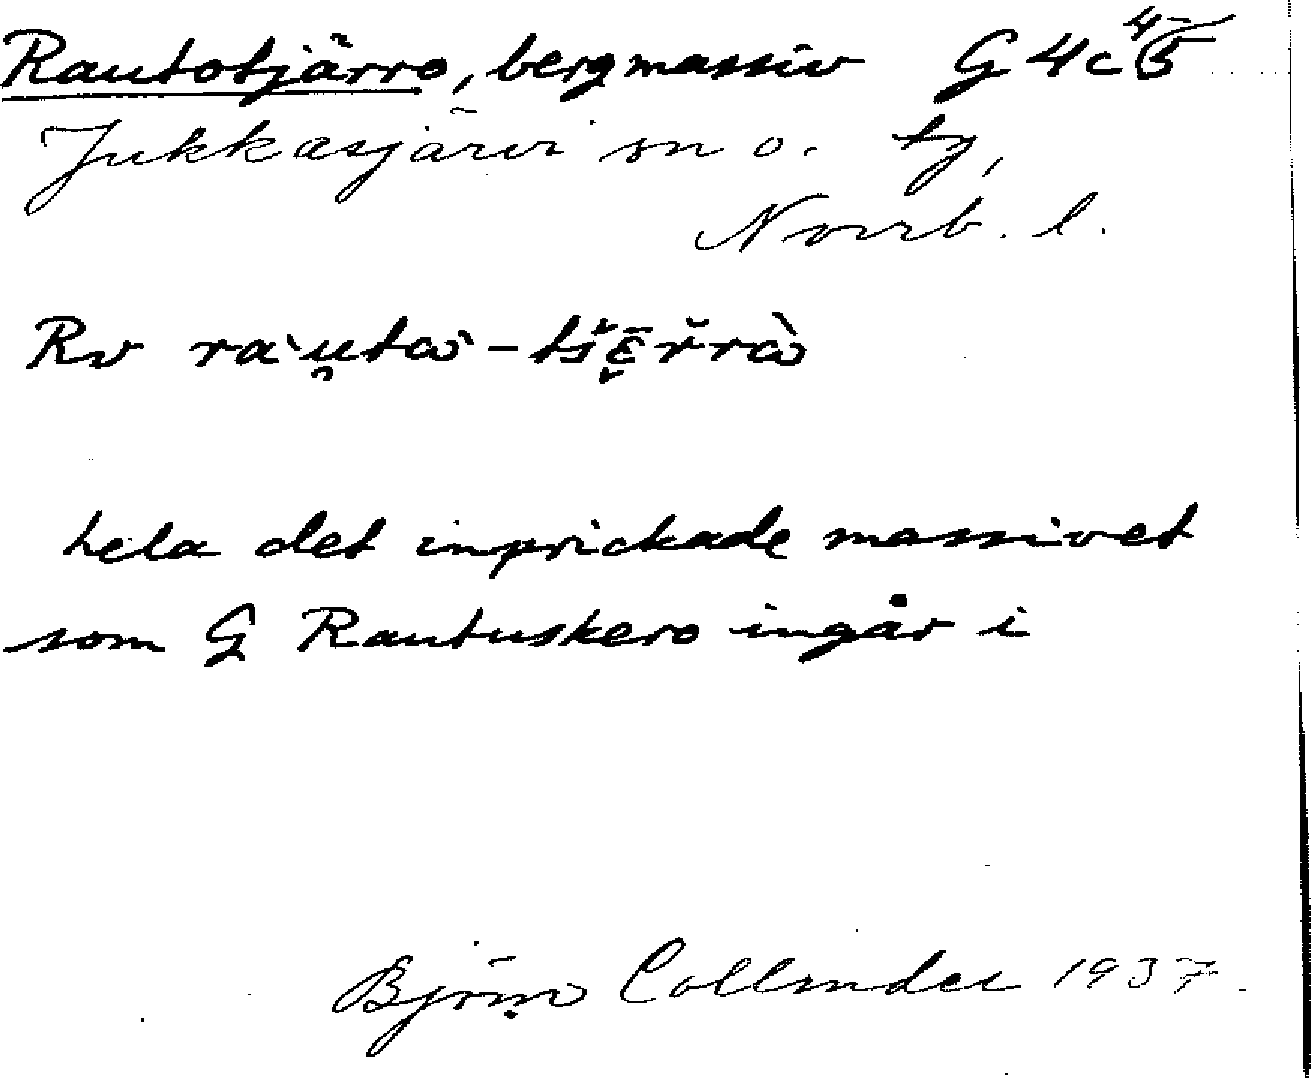 Rautotjärro, bergmassiv G 4c 4/5
Jukkasjärvi sn o. tg,
Norrb. l.
Rv
hela det inprickade massivet
som G Rautuskero ingår i
Björn Collinder 1937.